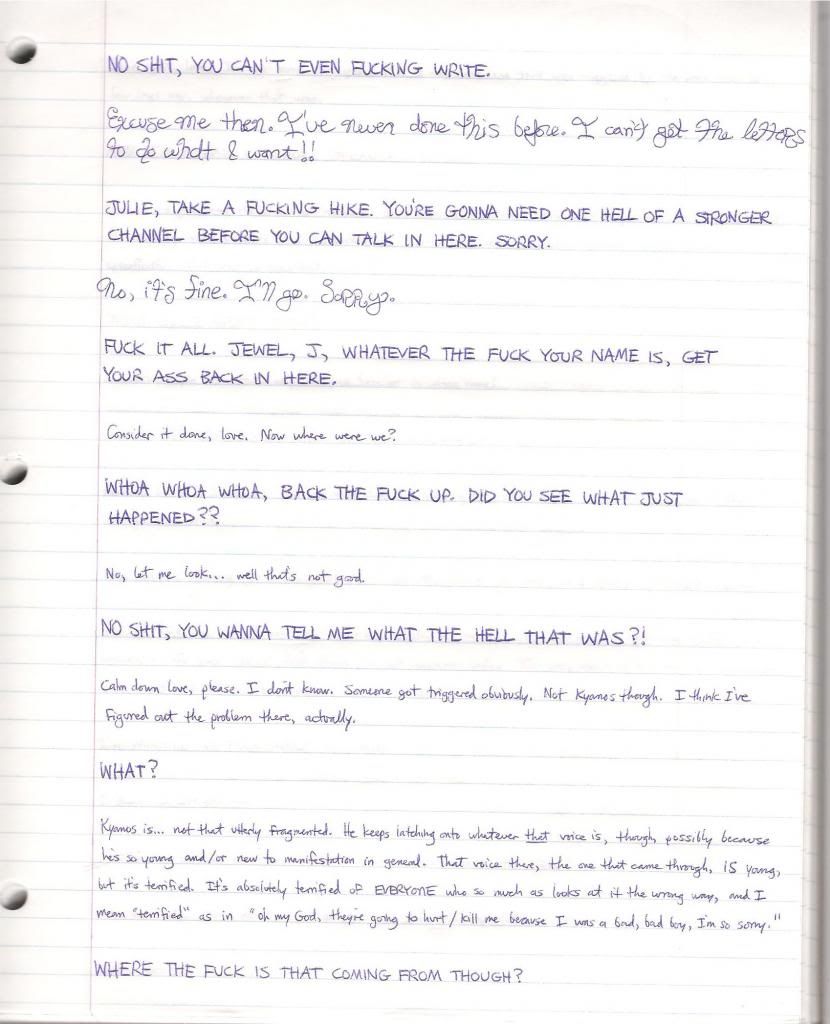 NO SHIT, YOU CAN'T EVEN FUCKING WRITE.
Excuse me then. I've never done this before. I can't get the letters
to go what I want!!
JULIE, TAKE A FUCKING HIKE. YOU'RE GONNA NEED ONE HELL OF A STRONGER
CHANNEL BEFORE YOU CAN TALK IN HERE. SORRY.
No, it's fine. I'll go. Sorry.
FUCK IT ALL. JEWEL, J, WHATEVER THE FUCK YOUR NAME IS, GET
YOUR ASS BACK IN HERE.
Consider it done, love. Now where were we?
WHOA WHOA WHOA, BACK THE FUCK UP. DID YOU SEE WHAT JUST
HAPPENED??
No, let me look... well that's not good.
NO SHIT, YOU WANNA TELL ME WHAT THE HELL THAT WAS?!
Calm down love, please. I don't know. Someone got triggered obviously. Not Kyanos though. I think I've
figured out the problem there, actually.
WHAT?
Kyanos is... not that utterly fragmented. He keeps latching onto whatever that voice is, though, possibly because
he's so young and/or new to manifestation in general. That voice there, the one that came through, IS young,
but it's terrified. It's absolutely terrified of EVERYONE who so much as looks at it the wrong way, and I
mean "terrified" as in "oh my God, they're going to hurt/kill me because I was a bad, bad boy, I'm so sorry."
WHERE THE FUCK IS THAT COMING FROM THOUGH?